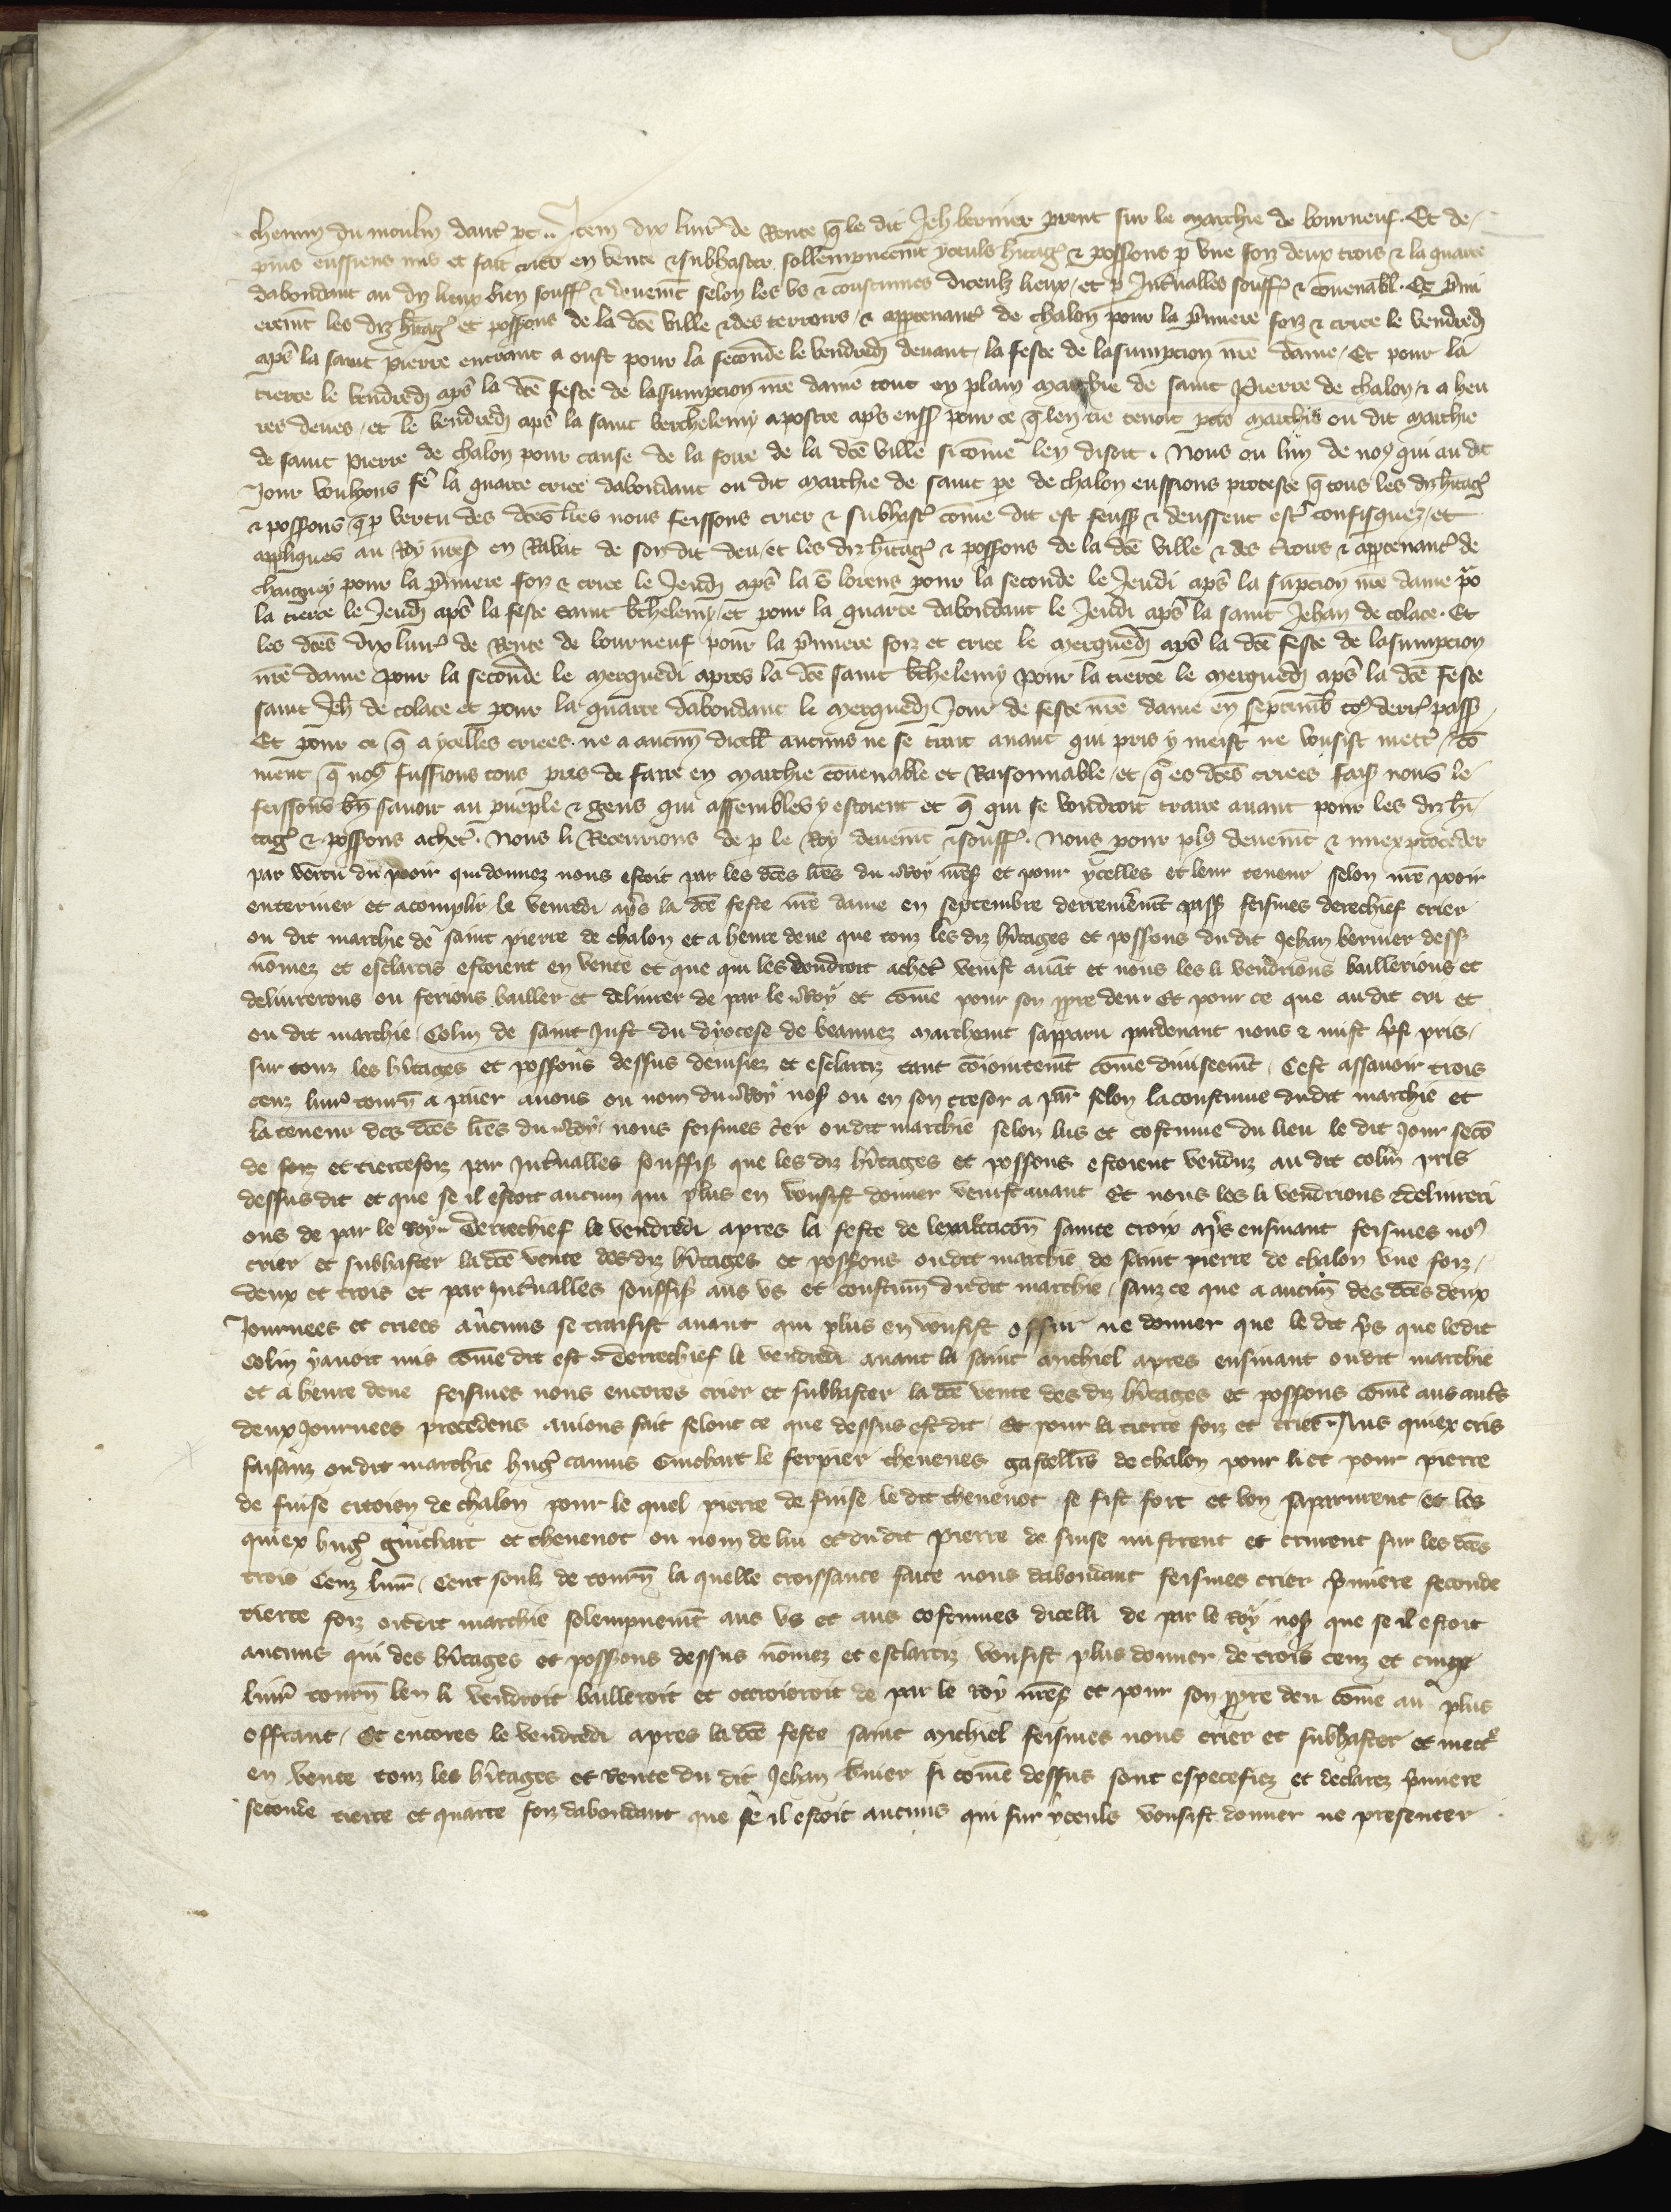 chemin du moulin dautᵉ pt .. Item dix liurᵉ de Rente q̄ le dit Jeh bernier prent sur le marchie de bourneuf . Et de-
puis eussiens mis et fait crier en vente & subhaster sollempneemt yceuls hitagᵉ & possōns p vne foiz deux trois & la quarte
dabondant au diz lieux bien souffⁱ & deuemt selon les vs & coustumes diceulz lieux / et p Intualles souffⁱ & couenabl . Et pmi
eremt les diz hitagᵉ et possons de la dce ville & des terroirs / & apptenantᵉ de chalon pour la pmiere foiz & criee le vendredj
aps la saint Pierre entrant a oust pour la seconde le vendredj deuant la feste de lasumpcion nre dame / Et pour la
tierce le vendredj aps la dce feste de lassumpcion nre dame tout en plain marchie de saint Pierre de chalon & a heu
res deues / et le vendredj aps la saint berthelemy apostre aps enss pour ce q̄ len ne tenoit pas marchie ou dit marchie
de saint Pierre de chalon pour cause de la foire de la dce ville si cōme len disoit . Nous ou lun de noᵘ qui au dit
Jour voulions fe la quarte criee dabondant ou dit marchie de saint pe de chalon eussions proteste q̄ tous les diz hitagᵉ
& possōns q̄ p vertu des dces lres nous feissons crier & subhastᵉ cōme dit est feuss & deussent estᵉ confisquez / et
appliques au Roy nreS en Rabat de son dit deu / et les diz hitagᵉ & possōns de la dce ville & des trois & apptenantᵉ de
chaigney pour la pmiere foiz & criee le Jeudj aps la S lorens pour la seconde le Jeudi aps la supcion nre dame po
la tierce le Jeudj aps la feste saint bthelemy / et pour la quarte dabondant le Jeudi aps la saint Jehan de colace . Et
les dces dix liurᵉ de Rente de bourneuf pour la pmiere foiz et criee le merquedj aps la dce feste de lasumpcion
nre dame pour la seconde le merquedi apres la dce saint bthelemy pour la tierce le merquedj aps la dce feste
saint Jeh de colace et pour la quarte dabondant le merquedj Jour de feste nre dame en septemb tos derrᵉ pass
Et pour ce q̄ a ycelles criees . ne a aucun dicell aucuns ne se trait auant qui pris y meist ne vousist mettᵉ / co
ment q̄ noᵘ fussions tous pres de faire en marchie couenable et Raisonnable / et q̄ es dces criees fais nous le
feissons bn sauoir au pueple & gens qui assembles y estoient et q̄ qui se voudroit traire auant pour les diz hi-
tagᵉ & possons achetᵉ . Nous li Receurions de p le Roy deuemt & souffⁱ . Nous pour plᵘ deuemt & miex proceder
par vertu du pooir qui donnez nous estoit par les dces lres du Roy nreS et pour ycelles et leur teneur selon nre pooir
enteriner et acomplir le venredi aps la dce feste nre dame en septembre derrenieremt pass feismes derechief crier
ou dit marchie de saint pierre de chalon et a heure deue que touz les diz hitages et possons du dit Jehan bernier dess
nomez et esclarcis estoient en vente et que qui les voudroit achetᵉ venist auat et nous les li vendrions baillerions et
deliurerons ou ferions bailler et deliurer de par le Roy et cōme pour son ppre deu . Et pour ce que au dit cri et
ou dit marchie / Colin de saint Just du dyocese de beauuez marcheant sapparu pardeuant nous & mist pst pris /
sur touz les hitages et possons dessus deuisiez et esclarciz tant coniointemt cōme diuiseemt . Cest assauoir trois
cenz liurᵉ tourn a paier auons ou nom du Roy noS ou en son tresor a par selon la coustume dudit marchie et
la teneur des dces lres du Roy / nous feismes crer ou dit marchie selon lus et costume du lieu le dit Jour seco
de foiz et tiercefoiz par Intualles souffis que les diz hitages et possons estoient venduz au dit colin pris
dessus dit et que se il estoit aucun qui plus en vousist donner venist auant Et nous les li vendrions & deliureri
ons de par le Roy .. Derrechief le vendredi apres la feste de lexaltacon sainte croix aps ensiuant feismes noᵘ
crier et subhaster la dce vente des diz hitages et possons ou dit marchie de saint pierre de chalon vne foiz /
deux et trois et par Intualles souffis aus vs et coustum du dit marchie / sanz ce que a aucun des dces deux
Journees et criees aucuns se traisist auant qui plus en vousist offrir ne donner que le dit ps que ledit
Colin y auoit mis cōme dit est .. Derrechief le vendredi auant la saint michiel apres ensiuant ou dit marchie
et a heure deue feismes nous encores crier et subhaster la dce vente des diz hitages et possons cōme aus auts
deux Journees precedens auions fait selont ce que dessus est dit . Et pour la tierce foiz et criee .. Aus quiex cris
faisanz ou dit marchie hugᵉ camus Guichart le ferpier cheuenes gastellis de chalon pour li et pour pierre
de fuise citoien de chalon pour le quel pierre de fuise le dit cheuenot se fist fort et bon sapparurent / et les
quiex hugᵉ guichart et cheuenot ou nom de lui et du dit pierre de fuise mistrent et crurent sur les dces
trois Cenz liur / Cent souls de tourn la quelle croissance faite nous dabondant feismes crier pmiere seconde
tierce foiz ou dit marchie solempnemt aus vs et aus costumes dicelli de par le Roy noS que se il estoit
aucuns qui des hitages et possons dessus nomez et esclarciz vousist plus donner de trois cenz et cinqz
liurᵉ tourn len li vendroit bailleroit et ottroieroit de par le Roy nreS et pour son ppre deu cōme au plus
offrant / Et encores le vendredi apres la dce feste saint michiel feismes nous crier et subhaster et mettᵉ
en vente touz les hitages et rente du dit Jehan bnier si cōme dessus sont especefiez et declarez pmiere
seconde tierce et quarte foiz dabondant que se il estoit aucuns qui sur yceuls vousist donner ne presenter